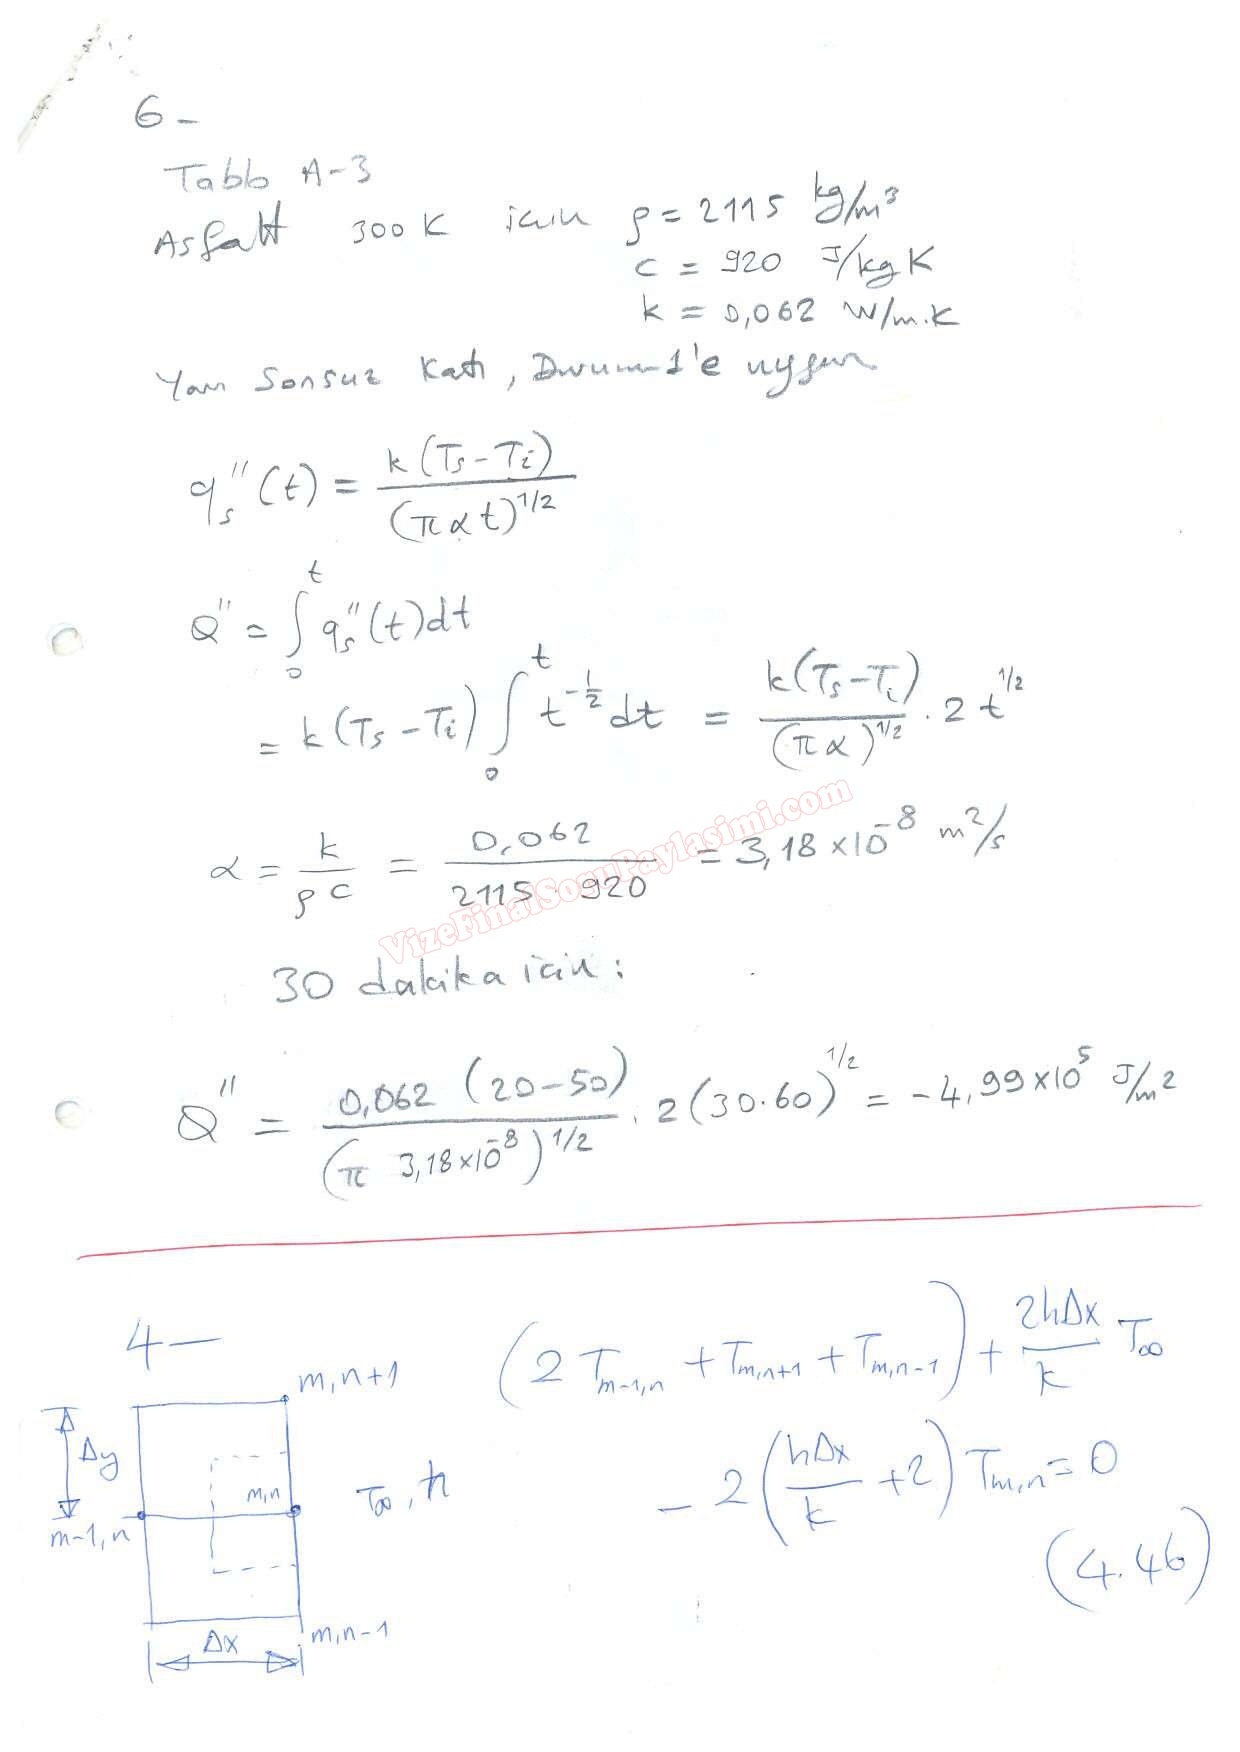 6-
Tablo A-3
Asfalt 300K için ρ = 2115 kg/m³
c = 920 J/kgK
k = 0,062 W/m.K
Yarı Sonsuz Katı, Durum-1'e uygun
qₛ''(t) = k(Tₛ-Tᵢ) / (παt)^1/2
Q'' = ∫₀ᵗ qₛ''(t)dt
= k(Tₛ-Tᵢ) ∫₀ᵗ t^-1/2 dt = k(Tₛ-Tᵢ) / (πα)^1/2 . 2 t^1/2
α = k / ρc = 0,062 / 2115 . 920 = 3,18×10^-8 m²/s
VizeFinalSoguPaylasimi.com
30 dakika için:
Q'' = 0,062 (20-50) / (π 3,18×10^-8)^1/2 . 2(30.60)^1/2 = -4,99×10^5 J/m²
4-
(2T_m-1,n + T_m,n+1 + T_m,n-1) + 2hΔx/k T∞
- 2(hΔx/k + 2) T_m,n = 0
(4.46)
m,n+1
Δy
m,n
T∞, h
m-1,n
m,n-1
Δx